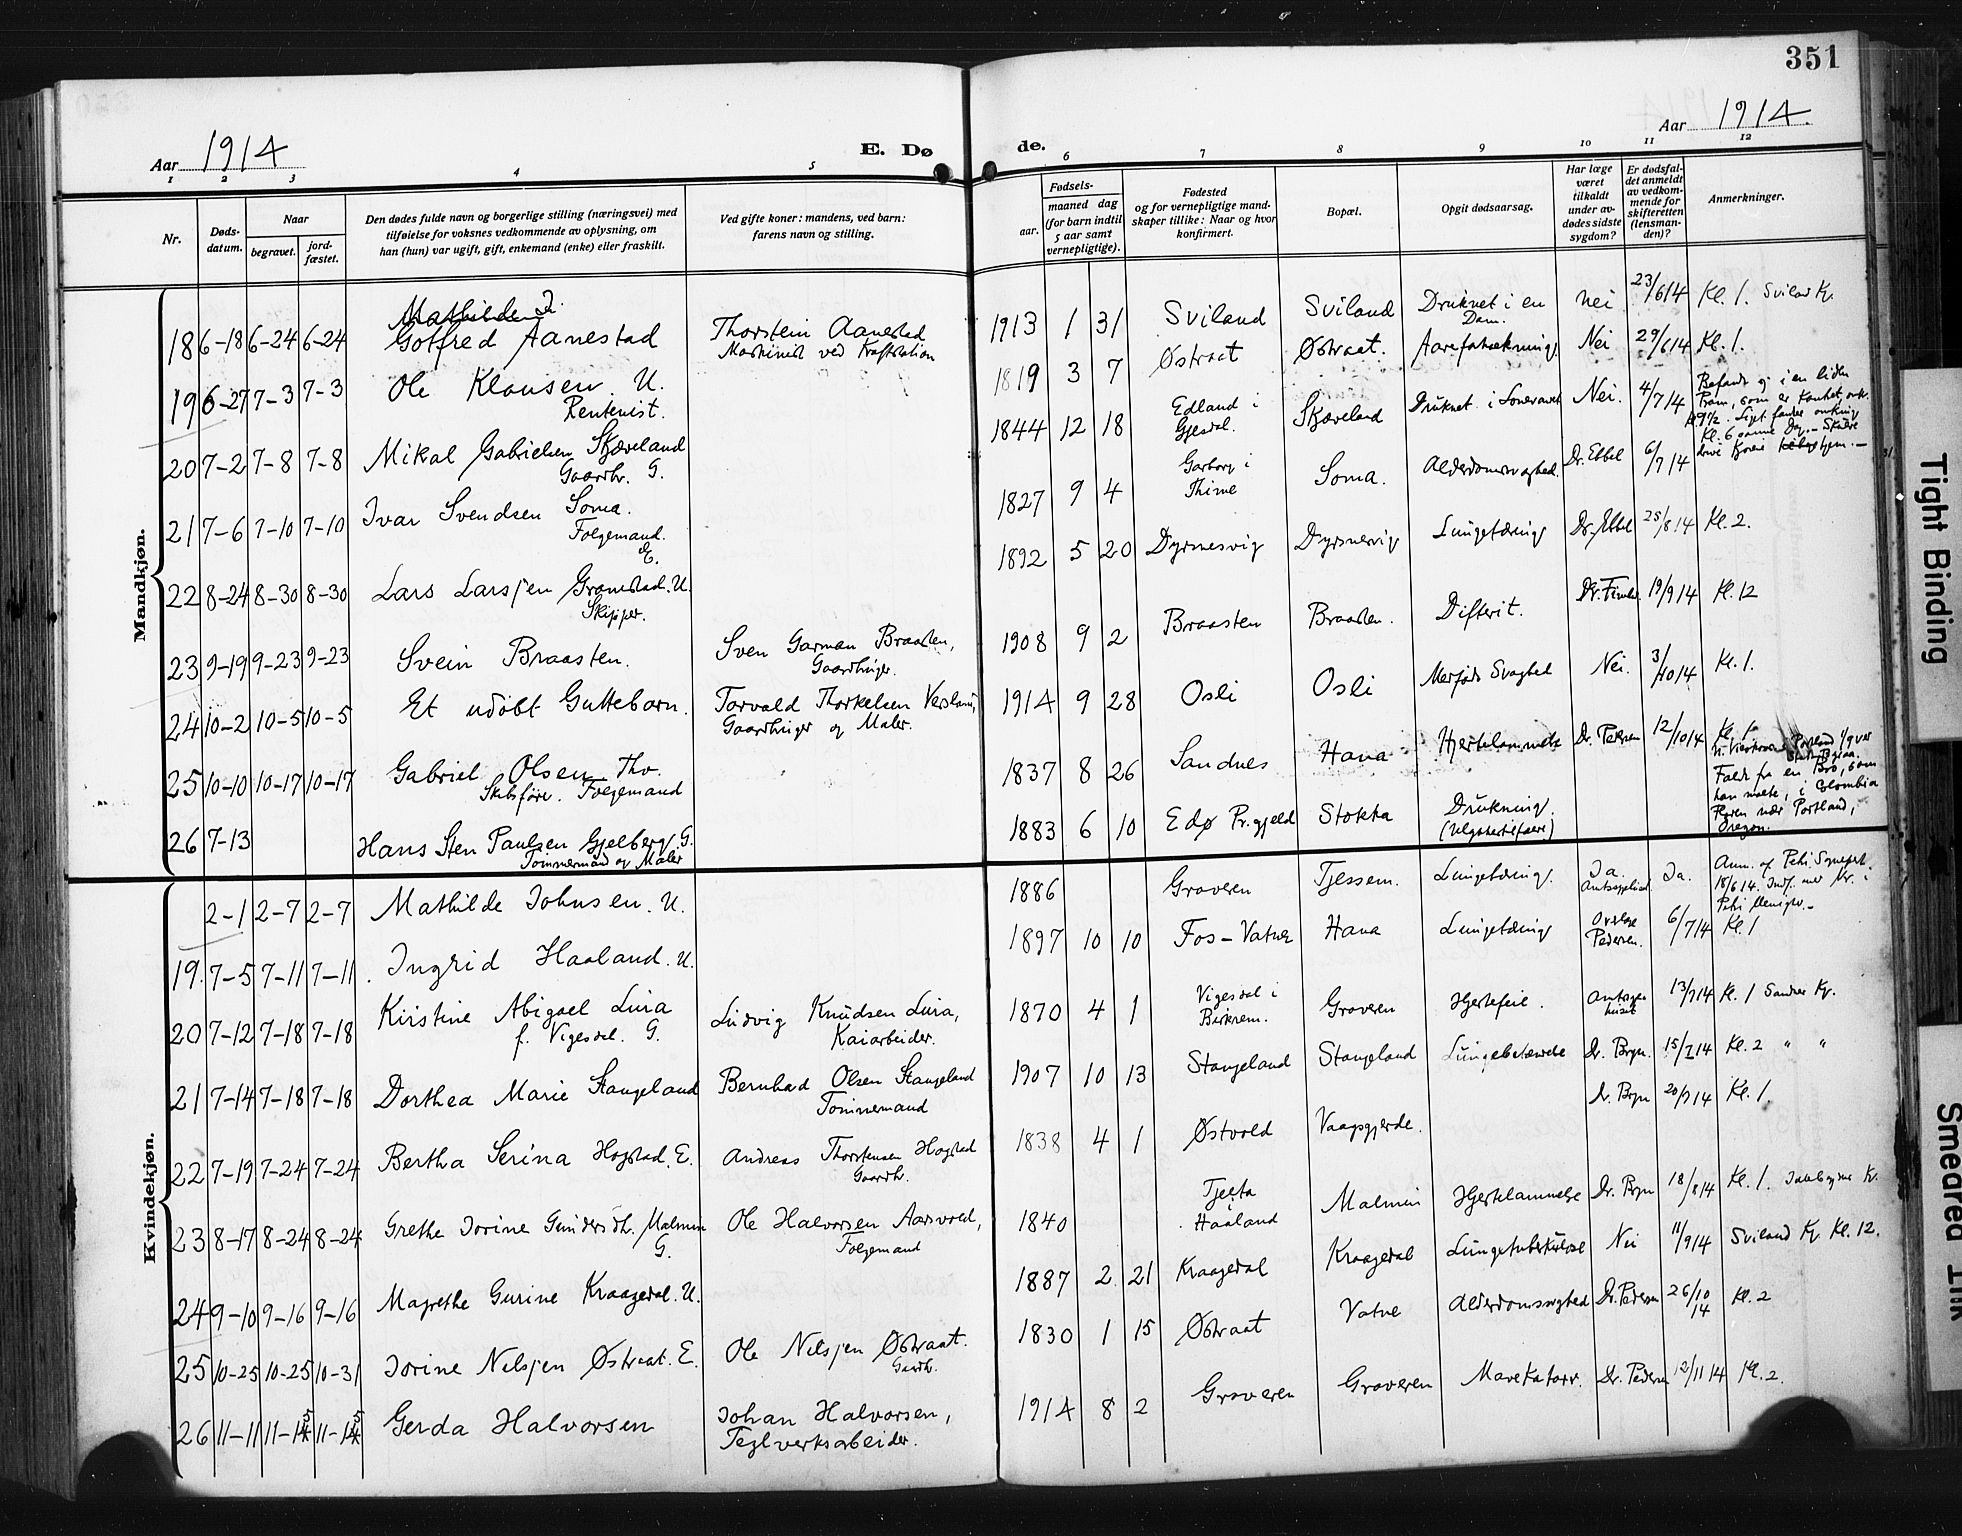 351
Aar 1914
E. Dø
de.
Aar 1914.
1 2 3 4 5 6 7 8 9 10 11 12
Nr.
Døds-
datum.
Naar
begravet.
jord-
fæstet.
Den dødes fulde navn og borgerlige stilling (næringsvei) med
tilføielse for voksnes vedkommende av oplysning, om
han (hun) var ugift, gift, enkemand (enke) eller fraskilt.
Ved gifte koner: mandens, ved barn:
farens navn og stilling.
Fødsels-
aar.
maaned dag
(for barn indtil
5 aar samt
vernepligtige).
Fødested
og for vernepligtige mand-
skaper tillike: Naar og hvor
konfirmert.
Bopæl.
Opgit dødsaarsag.
Har læge
været
tilkaldt
under av-
dødes sidste
sygdom?
Er dødsfal-
det anmeldt
av vedkom-
mende for
skifteretten
(lensman-
den)?
Anmerkninger.
Mandkjøn.
18 6-18 6-24 6-24 Gotfred Aanestad Thorstein Aanestad 1913 1 31 Sviland Sviland Druknet i en Nei 23/6 14 Kl. 1. Sviland Kg.
Maskinist ved Kraftstation Dam.
19 6-27 7-3 7-3 Ole Klausen U. 1819 3 7 Østraat Østraat. Aareforkalkning Nei 29/6 14 Kl. 1.
Rentenist.
20 7-2 7-8 7-8 Mikal Gabrielsen Skjæveland 1844 12 18 Edland i Skjæveland Druknet i Nei. 4/7 14
Gaardbr. G. Gjesdal.
21 7-6 7-10 7-10 Ivar Svendsen Soma. 1827 9 4 Garborg i Soma. Alderdomssvaghed. Dr. Ebbel 6/7 14
Folgemand. Thime
E.
22 8-24 8-30 8-30 Lars Larsjen U. 1892 5 20 Dyrsnesvig Dyrsnesvig Lungetæring Dr. Ebbel 25/8 14 Kl. 2.
Skipper.
23 9-19 9-23 9-23 Svein Braasten. Sven Garman Braasten, 1908 9 2 Braasten Braasten. Difterit. 19/9 14 Kl. 12
Gaardbruger.
24 10-2 10-5 10-5 Et udöbt Guttebarn. Torvald Thorkelsen 1914 9 28 Osli Osli Medfødt Svaghed Nei. 3/10 14 Kl. 1.
Gaardbruger og Maler.
25 10-10 10-17 10-17 Gabriel Olsen 1837 8 26 Sandnes Hana Hjertelammelse Dr. Pedersen 12/10 14 Kl. 1
Skibsfører. Folgemand
26 7-13 Hans Sten Paulsen Gjelberg. G. 1883 6 10 Edø Pr.gjeld Stokka Drukning.
Tømmermand og Maler (Ulykkestilfælde)
Faldt fra en Bro, som
han malte, i Colombia
floden nær Portland,
Oregon.
Kvindekjøn.
2-1 2-7 2-7 Mathilde Johnsen. U. 1886 Graveren Tjessem. Lungetæring. Ja. Ja.
19. 7-5 7-11 7-11 Ingrid Haaland. U. 1897 10 10 Fos-Vatne Hana Lungetæring Pedersen. 6/7 14 Kl. 1
20 7-12 7-18 7-18 Kirstine Abigael Lura Ludvig Knudsen Lura, 1870 4 1 Vigesdal i Graveren Hjertefeil. 13/7 14 Kl. 1 Sandnes Kg.
f. Vigesdal. G. Kaiarbeider. Birkrem.
21 7-14 7-18 7-18 Dorthea Marie Stangeland Bernhard Olsen Stangeland 1907 10 13 Stangeland Stangeland Lungebetændelse Dr. Bryn. 15/7 14 Kl. 2 " "
Tømmermand
22 7-19 7-24 7-24 Bertha Serina Hogstad. E. Andreas Thorstensen Hogstad 1838 4 1 Østvold Vaagsgjerde. Dr. Bryn 20/7 14 Kl. 1.
Gaardbr.
23 8-17 8-24 8-24 Grethe Jorine Gundersdt. Malmin Ole Halvorsen Aarsvold, 1840 Tjelta Malmin Hjertelammelse Dr. Bryn 18/8 14 Kl. 1.
G. Folgemand Haaland
24 9-10 9-16 9-16 Magrethe Gurine Kraagedal. U. 1887 2 21 Kraagedal Kraagedal Lungetuberkulose Nei 11/9 14 Sviland Kg. Kl. 12.
25 10-25 10-25 10-31 Jorine Nilsjen Østraat. E. Ole Nilsjen Østraat. 1830 1 15 Østraat Vatne Alderdomssvaghed Dr. Pedersen 26/10 14 Kl. 2
Gaardbr.
26 11-11 11-15 11-15 Gerda Halvorsen Johan Halvorsen, 1914 8 2 Graveren Graveren Mavekatarr. Dr. Pedersen 12/11 14 Kl. 2.
Teglverksarbeider.
Tight Binding
Smeared Ink